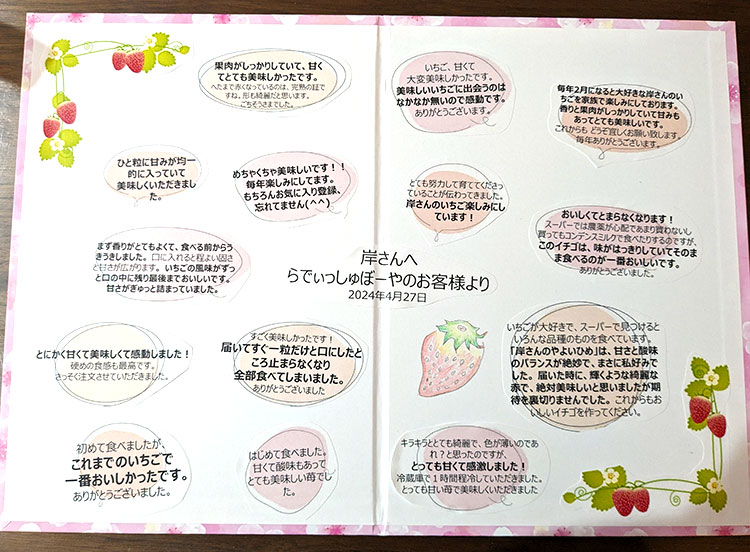 果肉がしっかりしていて、甘く
てとても美味しかったです。
へたまで赤くなっているのは、完熟の証で
すね。形も綺麗だと思います。
ごちそうさまでした。
ひと粒に甘みが均一
的に入っていて
美味しくいただきまし
た。
めちゃくちゃ美味しいです！！
毎年楽しみにしてます。
もちろんお気に入り登録、
忘れてません(^^)
まず香りがとてもよくて、食べる前からう
きうきしました。口に入れると程よい固さ
と甘さが広がります。いちごの風味がずっ
と口の中に残り最後までおいしいです。
甘さがぎゅっと詰まっていました。
とにかく甘くて美味しくて感動しました！
硬めの食感も最高です。
さっそく注文させていただきました。
すごく美味しかったです！
届いてすぐ一粒だけと口にしたと
ころ止まらなくなり
全部食べてしまいました。
ありがとうございました
初めて食べましたが、
これまでのいちごで
一番おいしかったです。
ありがとうございました。
はじめて食べました。
甘くて酸味もあって
とても美味しい苺でし
た。
岸さんへ
らでぃっしゅぼーやのお客様より
2024年4月27日
いちご、甘くて
大変美味しかったです。
美味しいいちごに出会うのは
なかなか無いので感動です。
ありがとうございます。
毎年2月になると大好きな岸さんのい
ちごを家族で楽しみにしております。
香りと果肉がしっかりしていて甘みも
あってとても美味しいです。
これからも どうぞ宜しくお願い致します。
毎年ありがとうございます。
とても努力して育ててくださっ
ていることが伝わってきました。
岸さんのいちご楽しみにし
ています！
おいしくてとまらなくなります！
スーパーでは農薬が心配であまり買わないし
買ってもコンデンスミルクで食べたりするのですが、
このイチゴは、味がはっきりしていてそのま
ま食べるのが一番おいしいです。
ありがとうございました。
いちごが大好きで、スーパーで見つけると
いろんな品種のものを食べています。
「岸さんのやよいひめ」は、甘さと酸味
のバランスが絶妙で、まさに私好みで
した。届いた時に、輝くような綺麗な
赤で、絶対美味しいと思いましたが期
待を裏切りませんでした。これからもお
いしいイチゴを作ってください。
キラキラととても綺麗で、色が薄いのであ
れ？と思ったのですが、
とっても甘くて感激しました！
冷蔵庫で１時間程冷していただきました。
とっても甘い苺で美味しくいただきました